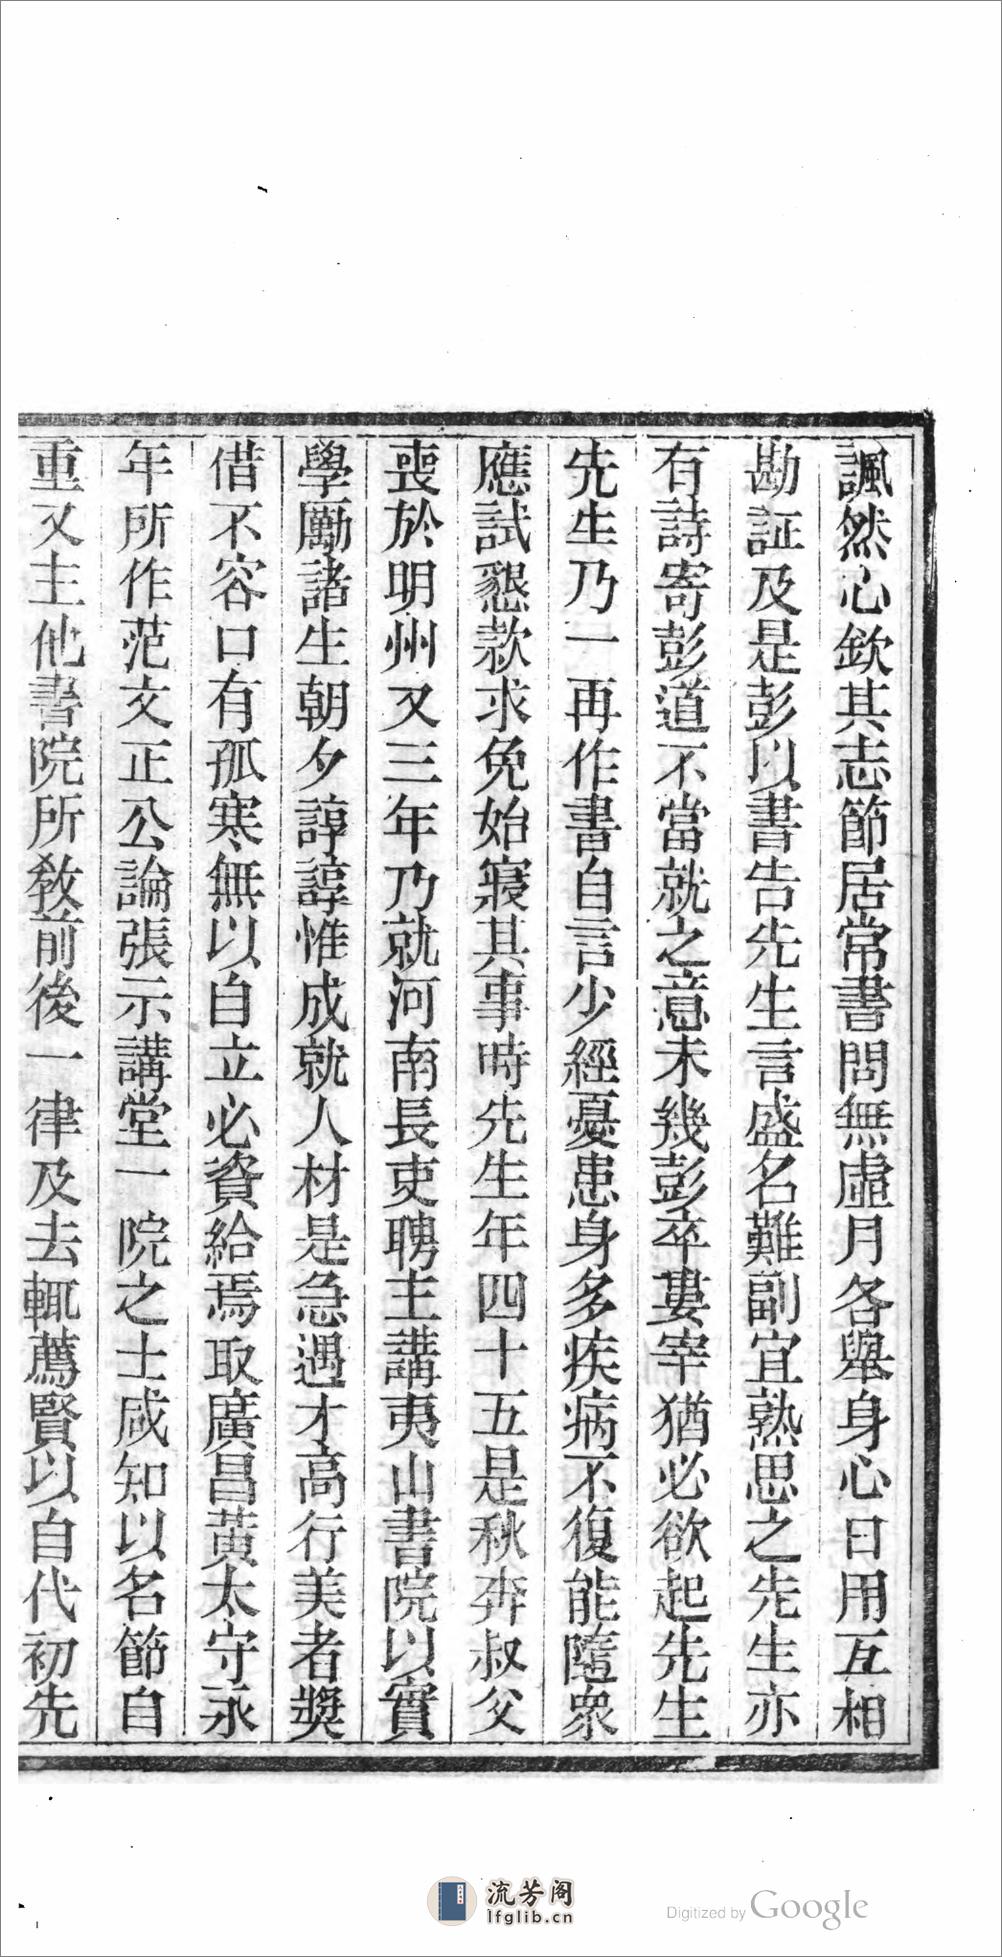 諷然心欽其志節居常書問無虛月各舉身心日用互相
勘証及是彭以書告先生言盛名難副宜熟思之先生亦
有詩寄彭道不當就之意未幾彭卒婁宰猶必欲起先生
先生乃一再作書自言少經憂患身多疾病不復能隨衆
應試懇款求免始寢其事時先生年四十五是秋奔叔父
喪於明州又三年乃就河南長吏聘主講夷山書院以實
學勵諸生朝夕諄諄惟成就人材是急遇才高行美者奬
借不容口有孤寒無以自立必資給焉取廣昌黃太守永
年所作范文正公論張示講堂一院之士咸知以名節自
重又主他書院所敎前後一律及去輒薦賢以自代初先
流芳阁
lfglib.cn
Digitized by Google